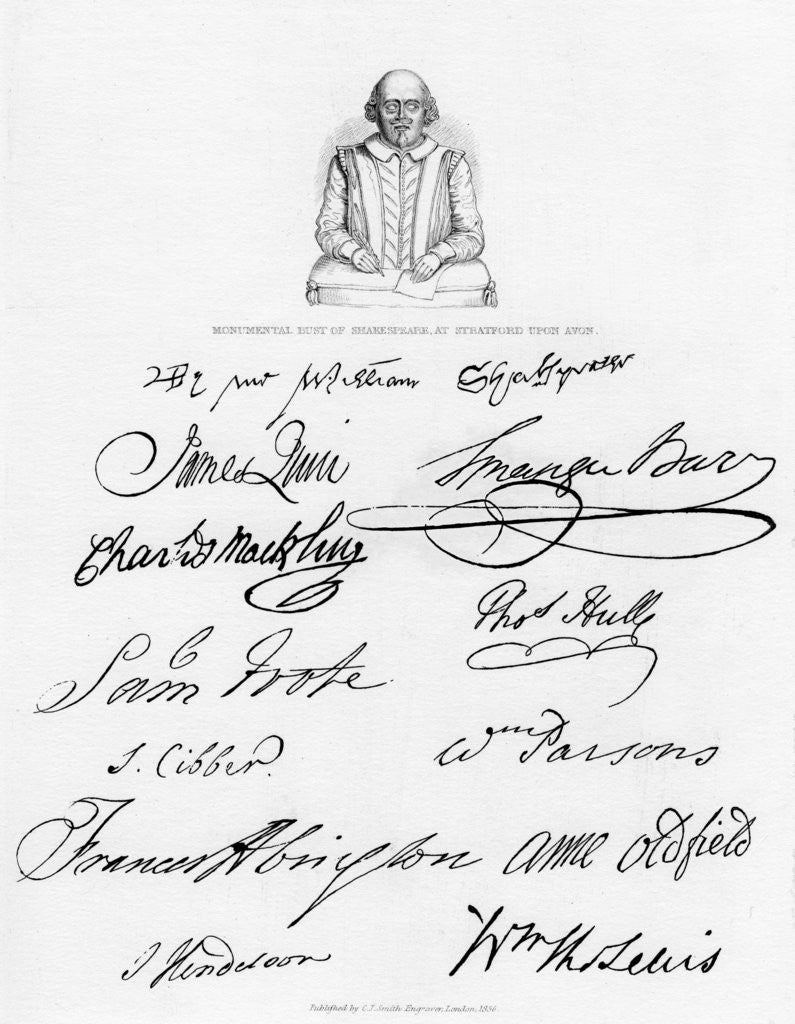 MONUMENTAL BUST OF SHAKESPEARE, AT STRATFORD UPON AVON.
By me William Shakspeare
James Quin
Spranger Barry
Charles Macklin
Thos Hull
Sam Foote
S. Cibber.
Wm Parsons
Frances Abington
Anne Oldfield
J Henderson
Wm Tho Lewis
Published by C.J. Smith Engraver, London, 1836.